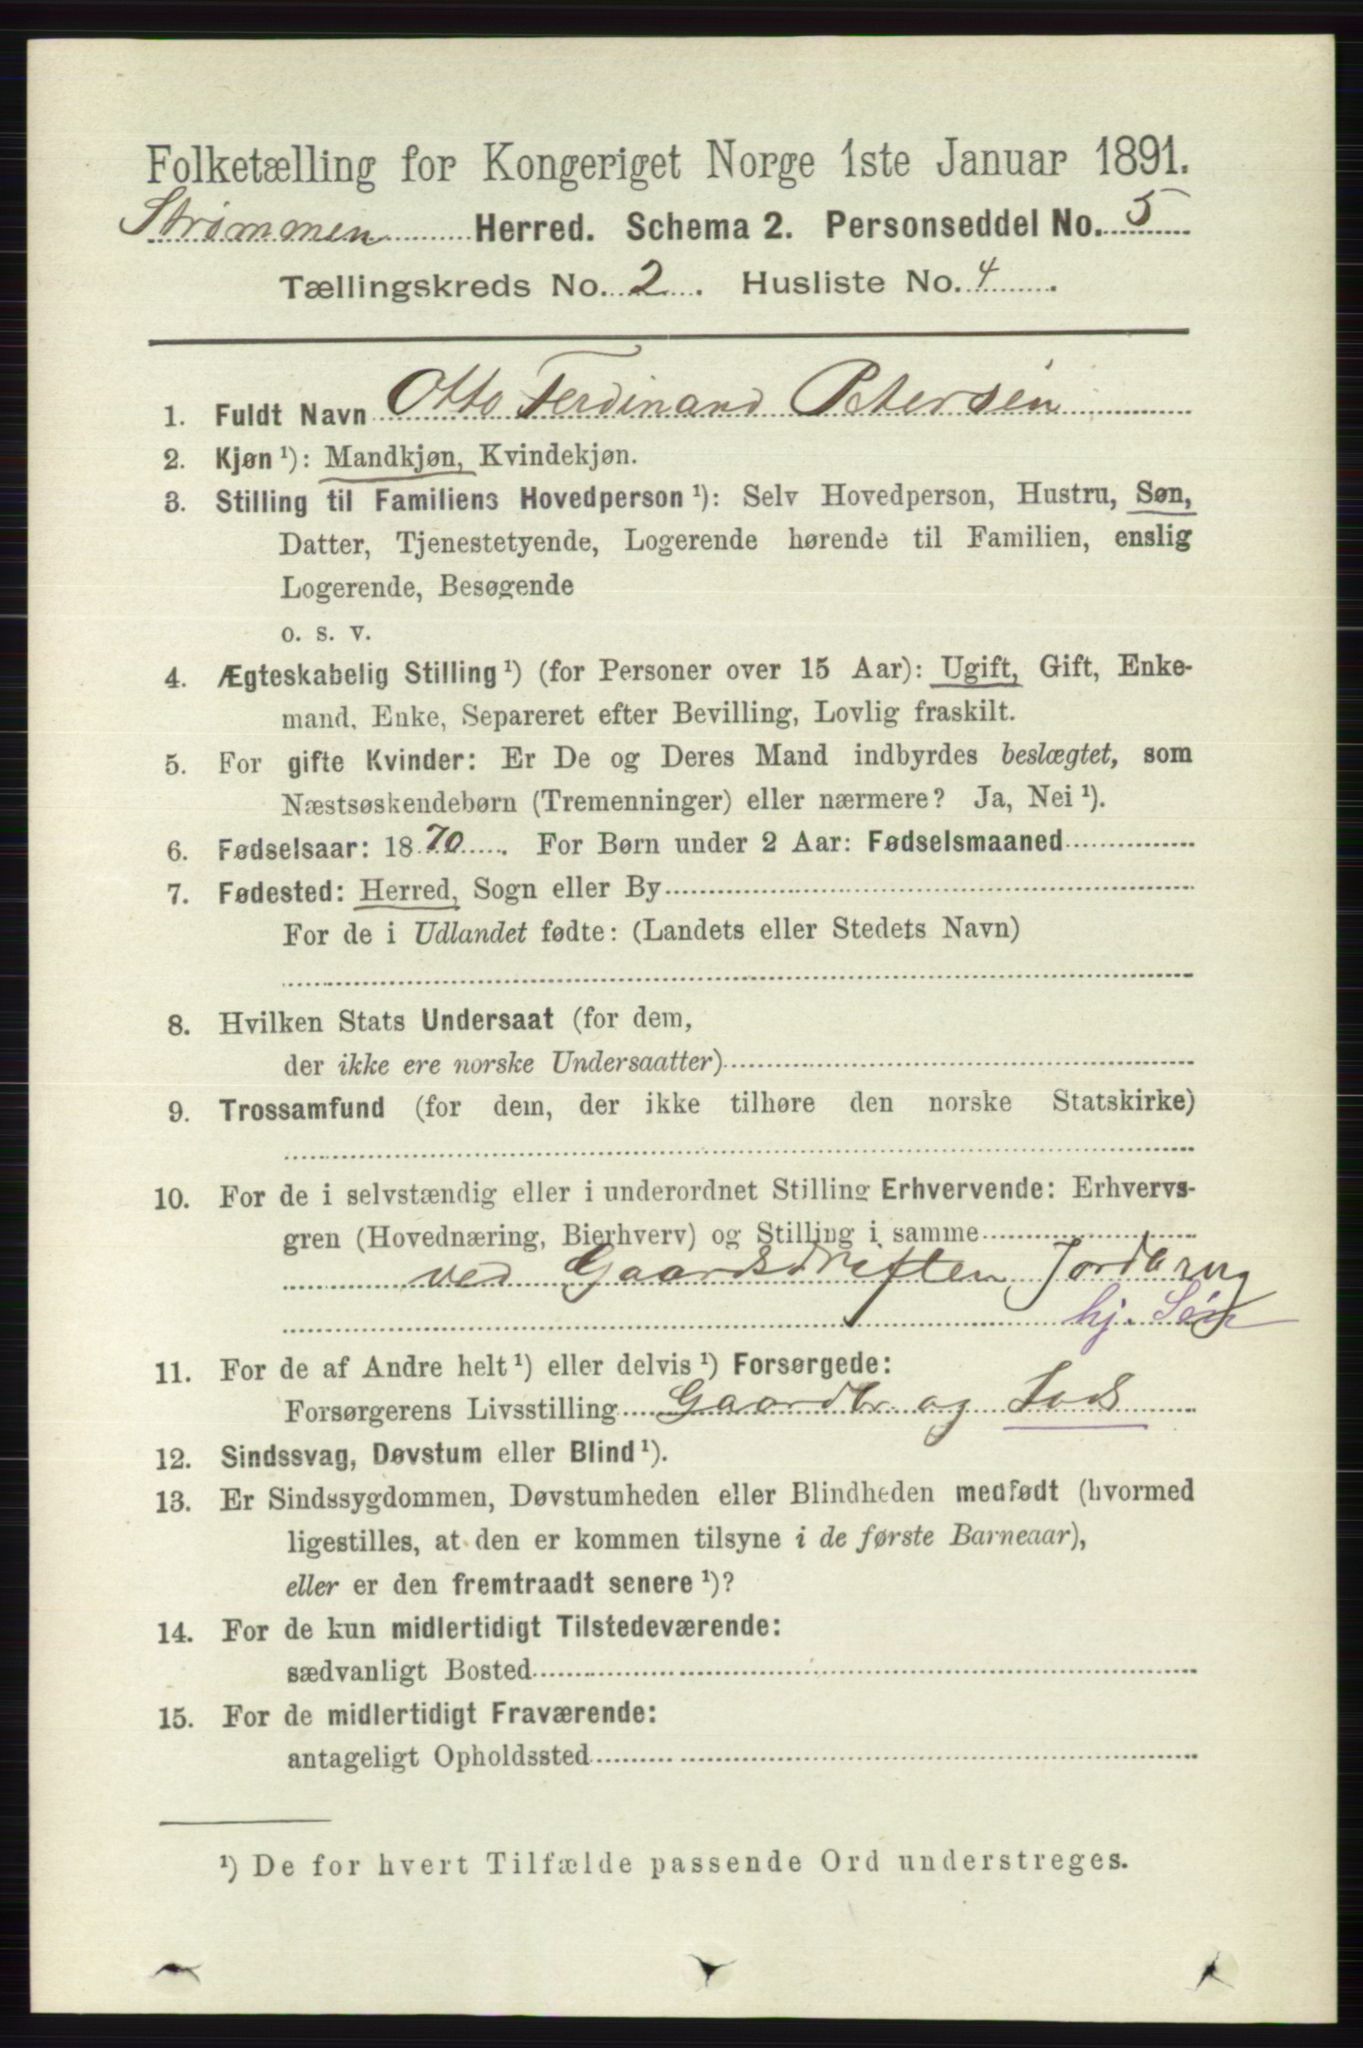 Folketælling for Kongeriget Norge 1ste Januar 1891.
Strømmen Herred. Schema 2. Personseddel No. 5
Tællingskreds No. 2. Husliste No. 4.
1. Fuldt Navn Otto Ferdinand Petersen
2. Kjøn ¹): Mandkjøn, Kvindekjøn.
3. Stilling til Familiens Hovedperson ¹): Selv Hovedperson, Hustru, Søn,
Datter, Tjenestetyende, Logerende hørende til Familien, enslig
Logerende, Besøgende
o. s. v.
4. Ægteskabelig Stilling ¹) (for Personer over 15 Aar): Ugift, Gift, Enke-
mand, Enke, Separeret efter Bevilling, Lovlig fraskilt.
5. For gifte Kvinder: Er De og Deres Mand indbyrdes beslægtet, som
Næstsøskendebørn (Tremenninger) eller nærmere? Ja, Nei ¹).
6. Fødselsaar: 1870. For Børn under 2 Aar: Fødselsmaaned
7. Fødested: Herred, Sogn eller By
For de i Udlandet fødte: (Landets eller Stedets Navn)
8. Hvilken Stats Undersaat (for dem,
der ikke ere norske Undersaatter)
9. Trossamfund (for dem, der ikke tilhøre den norske Statskirke)
10. For de i selvstændig eller i underordnet Stilling Erhvervende: Erhvervs-
gren (Hovednæring, Bierhverv) og Stilling i samme
ved Gaardsdriften Jordbrug
hj. Søn
11. For de af Andre helt ¹) eller delvis ¹) Forsørgede:
Forsørgerens Livsstilling Gaardbr og Lods
12. Sindssvag, Døvstum eller Blind ¹).
13. Er Sindssygdommen, Døvstumheden eller Blindheden medfødt (hvormed
ligestilles, at den er kommen tilsyne i de første Barneaar),
eller er den fremtraadt senere ¹)?
14. For de kun midlertidigt Tilstedeværende:
sædvanligt Bosted
15. For de midlertidigt Fraværende:
antageligt Opholdssted
¹) De for hvert Tilfælde passende Ord understreges.